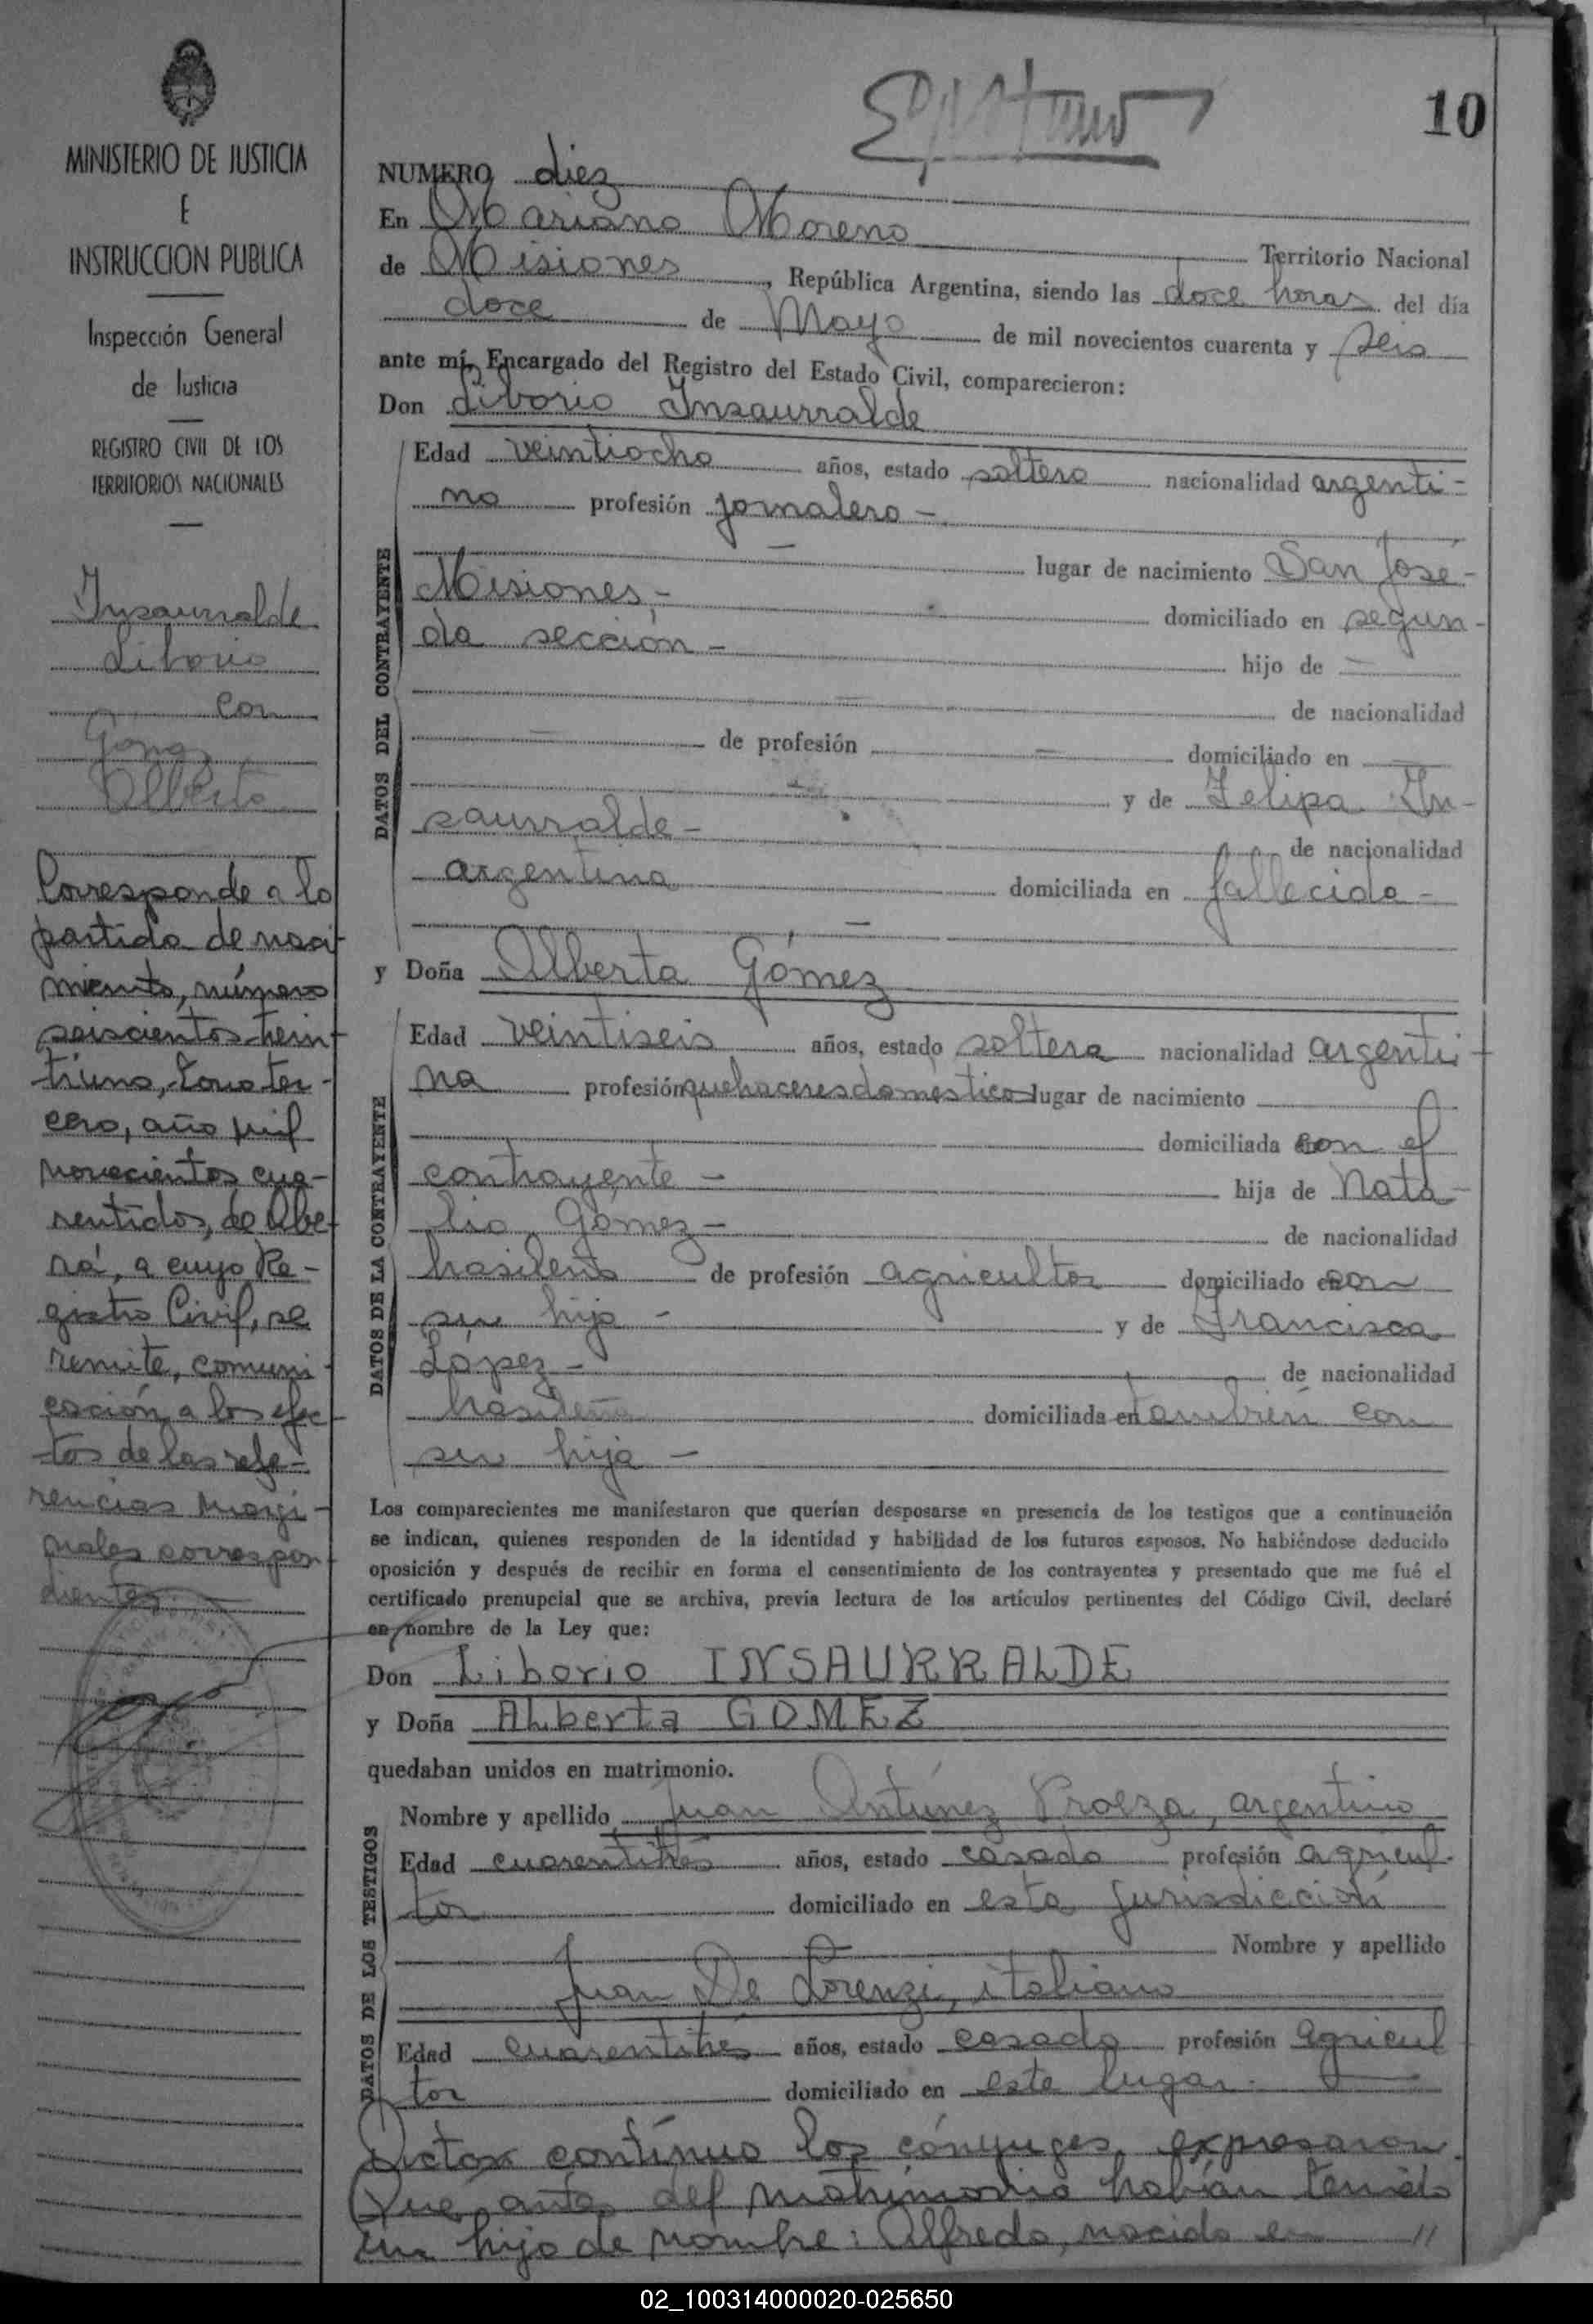 10
MINISTERIO DE JUSTICIA
E
INSTRUCCION PUBLICA
Inspección General
de Justicia
REGISTRO CIVIL DE LOS
TERRITORIOS NACIONALES
Insaurralde
Liborio
con
Gomez
Alberta
Corresponde a la
partida de naci-
miento, número
seiscientos trein-
tiuno, tomo ter-
cero, año mil
novecientos cua-
rentidos, de Obe-
rá, a cuyo Re-
gistro Civil, se
remite, comuni-
cación, a los efec-
tos de las refe-
rencias margi-
nales correspon-
dientes.
NUMERO diez
En Mariano Moreno Territorio Nacional
de Misiones, República Argentina, siendo las doce horas del día
doce de Mayo de mil novecientos cuarenta y seis
ante mí, Encargado del Registro del Estado Civil, comparecieron:
Don Liborio Insaurralde
DATOS DEL CONTRAYENTE
Edad veintiocho años, estado soltero nacionalidad argenti-
no profesión jornalero -
lugar de nacimiento San José -
Misiones - domiciliado en segun-
da sección - hijo de -
de nacionalidad
de profesión domiciliado en
y de Felipa In-
saurralde - de nacionalidad
argentina domiciliada en fallecida -
y Doña Alberta Gómez
DATOS DE LA CONTRAYENTE
Edad veintiseis años, estado soltera nacionalidad argenti-
na profesión quehaceres domésticos lugar de nacimiento
domiciliada con el
contrayente - hija de Nata-
lio Gómez - de nacionalidad
brasileña de profesión agricultor domiciliado con
su hija - y de Francisca
López - de nacionalidad
brasileña domiciliada en también con
su hija -
Los comparecientes me manifestaron que querían desposarse en presencia de los testigos que a continuación
se indican, quienes responden de la identidad y habilidad de los futuros esposos. No habiéndose deducido
oposición y después de recibir en forma el consentimiento de los contrayentes y presentado que me fué el
certificado prenupcial que se archiva, previa lectura de los artículos pertinentes del Código Civil, declaré
en nombre de la Ley que:
Don Liborio INSAURRALDE
y Doña Alberta GOMEZ
quedaban unidos en matrimonio.
DATOS DE LOS TESTIGOS
Nombre y apellido Juan Antúnez Proeza, argentino
Edad cuarentitrés años, estado casado profesión agricul-
tor domiciliado en esta jurisdicción
Nombre y apellido
Juan De Lorenzi, italiano
Edad cuarentitrés años, estado casado profesión agricul
tor domiciliado en este lugar.
Acto contínuo los cónyuges, expresaron
que antes del matrimonio habían tenido
un hijo de nombre: Alfredo, nacido en //
02_100314000020-025650